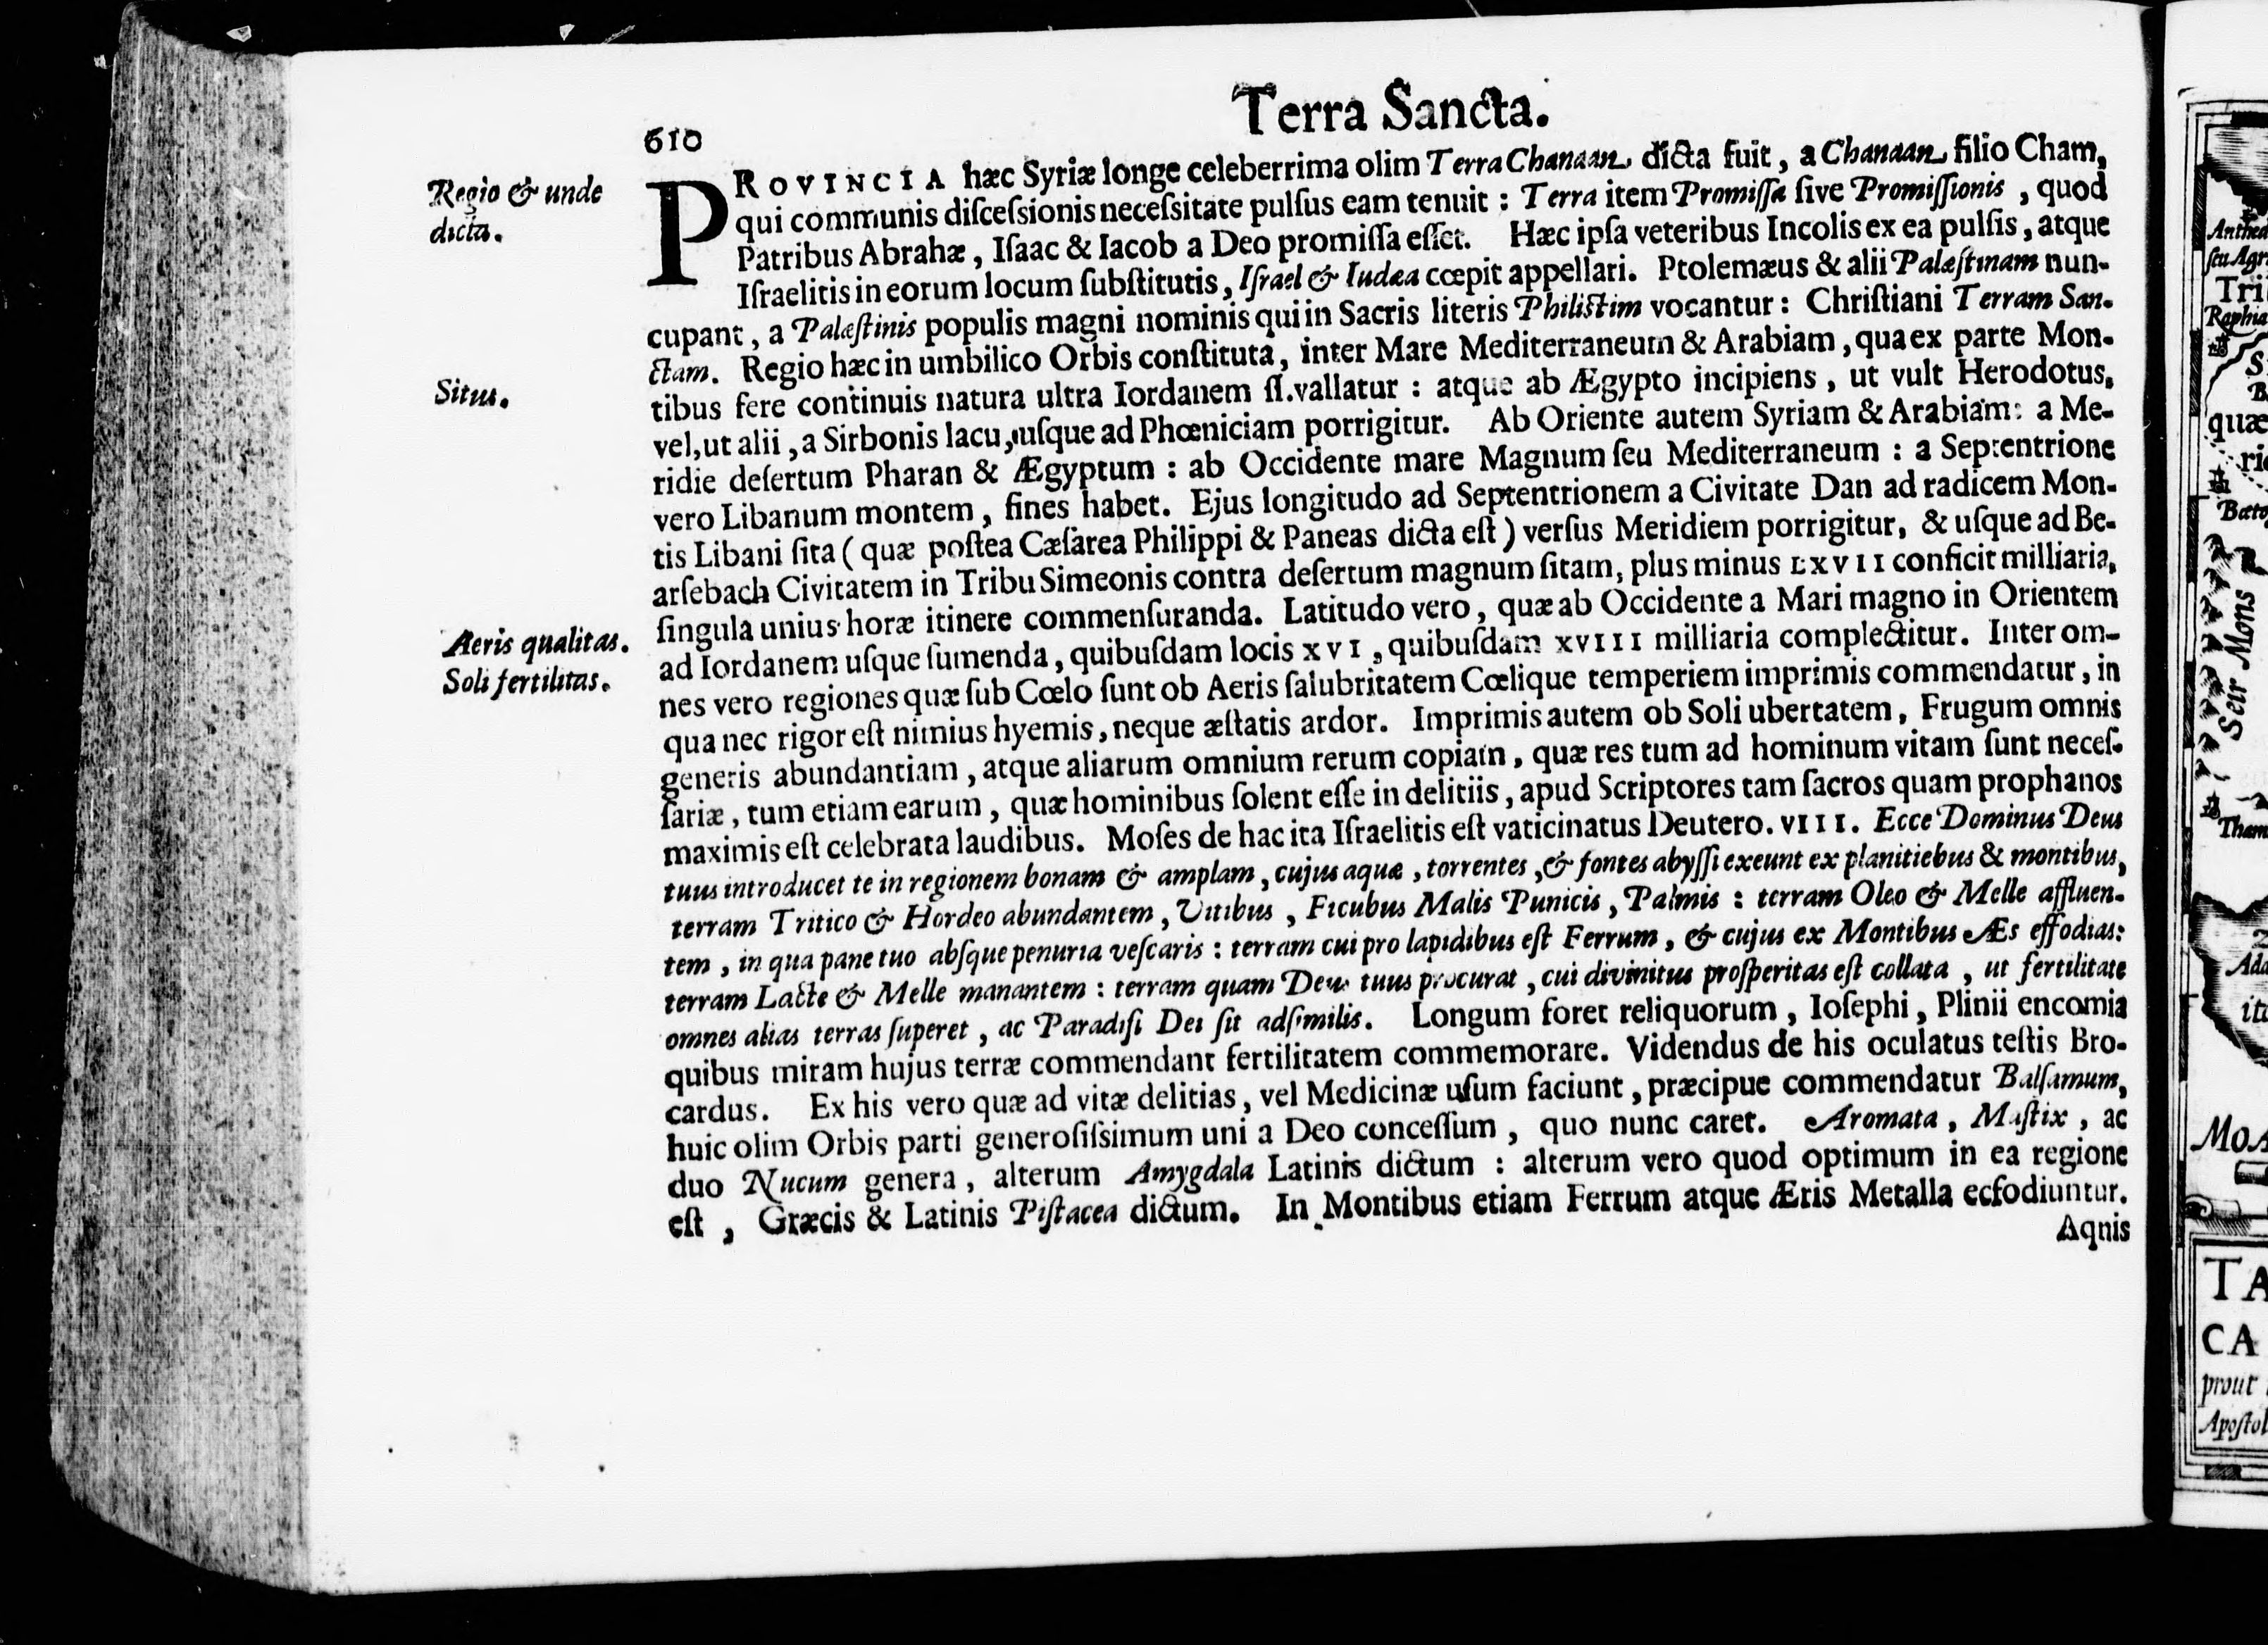 Terra Sancta.
610
Regio & unde
dicta.
PROVINCIA hæc Syriæ longe celeberrima olim Terra Chanaan dicta fuit, a Chanaan filio Cham,
qui communis diſceſsionis neceſsitate pulſus eam tenuit: Terra item Promiſſa ſive Promiſſionis, quod
Patribus Abrahæ, Iſaac & Iacob a Deo promiſſa eſſet. Hæc ipſa veteribus Incolis ex ea pulſis, atque
Iſraelitis in eorum locum ſubſtitutis, Iſrael & Iudæa cœpit appellari. Ptolemæus & alii Palæſtinam nun-
cupant, a Palæſtinis populis magni nominis qui in Sacris literis Philiſtim vocantur: Chriſtiani Terram San-
ctam. Regio hæc in umbilico Orbis conſtituta, inter Mare Mediterraneum & Arabiam, qua ex parte Mon-
Situs.
tibus fere continuis natura ultra Iordanem ſl.vallatur: atque ab Ægypto incipiens, ut vult Herodotus,
vel, ut alii, a Sirbonis lacu, uſque ad Phœniciam porrigitur. Ab Oriente autem Syriam & Arabiam: a Me-
ridie deſertum Pharan & Ægyptum: ab Occidente mare Magnum ſeu Mediterraneum: a Septentrione
vero Libanum montem, fines habet. Ejus longitudo ad Septentrionem a Civitate Dan ad radicem Mon-
tis Libani ſita (quæ poſtea Cæſarea Philippi & Paneas dicta eſt) verſus Meridiem porrigitur, & uſque ad Be-
arſebach Civitatem in Tribu Simeonis contra deſertum magnum ſitam, plus minus LXVII conficit milliaria,
ſingula unius horæ itinere commenſuranda. Latitudo vero, quæ ab Occidente a Mari magno in Orientem
Aeris qualitas.
ad Iordanem uſque ſumenda, quibuſdam locis XVI, quibuſdam XVIII milliaria complectitur. Inter om-
Soli fertilitas.
nes vero regiones quæ ſub Cœlo ſunt ob Aeris ſalubritatem Cœlique temperiem imprimis commendatur, in
qua nec rigor eſt nimius hyemis, neque æſtatis ardor. Imprimis autem ob Soli ubertatem, Frugum omnis
generis abundantiam, atque aliarum omnium rerum copiam, quæ res tum ad hominum vitam ſunt neceſ-
ſariæ, tum etiam earum, quæ hominibus ſolent eſſe in delitiis, apud Scriptores tam ſacros quam prophanos
maximis eſt celebrata laudibus. Moſes de hac ita Iſraelitis eſt vaticinatus Deutero. VIII. Ecce Dominus Deus
tuus introducet te in regionem bonam & amplam, cujus aquæ, torrentes, & fontes abyſſi exeunt ex planitiebus & montibus,
terram Tritico & Hordeo abundantem, Vitibus, Ficubus Malis Punicis, Palmis: terram Oleo & Melle affluen-
tem, in qua pane tuo abſque penuria veſcaris: terram cui pro lapidibus eſt Ferrum, & cujus ex Montibus Æs effodias:
terram Lacte & Melle manantem: terram quam Deus tuus procurat, cui divinitus proſperitas eſt collata, ut fertilitate
omnes alias terras ſuperet, ac Paradiſi Dei ſit adſimilis. Longum foret reliquorum, Ioſephi, Plinii encomia
quibus miram hujus terræ commendant fertilitatem commemorare. Videndus de his oculatus teſtis Bro-
cardus. Ex his vero quæ ad vitæ delitias, vel Medicinæ uſum faciunt, præcipue commendatur Balſamum,
huic olim Orbis parti generoſiſsimum uni a Deo conceſſum, quo nunc caret. Aromata, Maſtix, ac
duo Nucum genera, alterum Amygdala Latinis dictum: alterum vero quod optimum in ea regione
eſt, Græcis & Latinis Piſtacea dictum. In Montibus etiam Ferrum atque Æris Metalla ecfodiuntur.
Aqnis
Tri
Raphia
quæ
Seir Mons
TA
CA
prout
Apoſtol